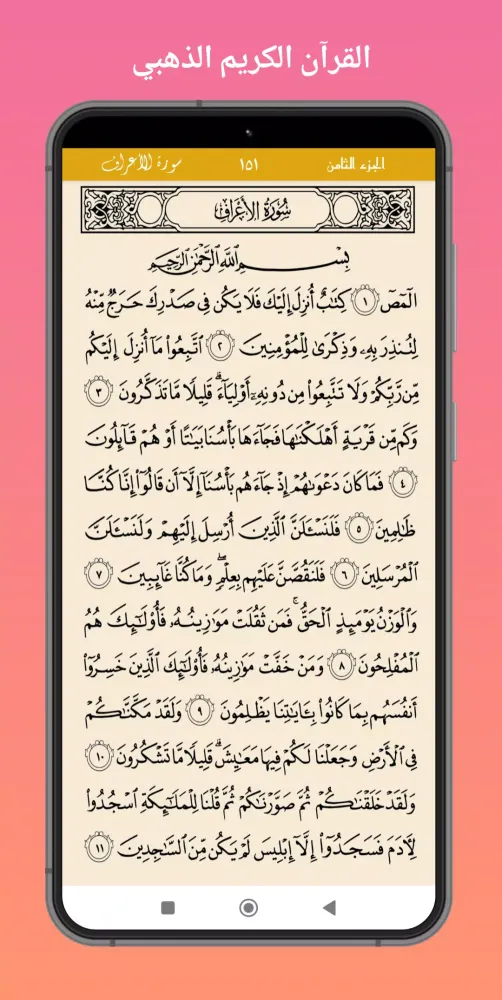 القرآن الكريم الذهبي
الجزء الثامن ١٥١ سورة الأعراف
سُورَةُ الأَعْرَافِ
بِسْمِ اللَّهِ الرَّحْمَٰنِ الرَّحِيمِ
الٓمٓصٓ ١ كِتَٰبٌ أُنزِلَ إِلَيْكَ فَلَا يَكُن فِى صَدْرِكَ حَرَجٌ مِّنْهُ
لِتُنذِرَ بِهِۦ وَذِكْرَىٰ لِلْمُؤْمِنِينَ ٢ ٱتَّبِعُوا۟ مَآ أُنزِلَ إِلَيْكُم
مِّن رَّبِّكُمْ وَلَا تَتَّبِعُوا۟ مِن دُونِهِۦٓ أَوْلِيَآءَ ۗ قَلِيلًا مَّا تَذَكَّرُونَ ٣
وَكَم مِّن قَرْيَةٍ أَهْلَكْنَٰهَا فَجَآءَهَا بَأْسُنَا بَيَٰتًا أَوْ هُمْ قَآئِلُونَ
٤ فَمَا كَانَ دَعْوَىٰهُمْ إِذْ جَآءَهُم بَأْسُنَآ إِلَّآ أَن قَالُوٓا۟ إِنَّا كُنَّا
ظَٰلِمِينَ ٥ فَلَنَسْـَٔلَنَّ ٱلَّذِينَ أُرْسِلَ إِلَيْهِمْ وَلَنَسْـَٔلَنَّ
ٱلْمُرْسَلِينَ ٦ فَلَنَقُصَّنَّ عَلَيْهِم بِعِلْمٍ ۖ وَمَا كُنَّا غَآئِبِينَ ٧
وَٱلْوَزْنُ يَوْمَئِذٍ ٱلْحَقُّ ۚ فَمَن ثَقُلَتْ مَوَٰزِينُهُۥ فَأُو۟لَٰٓئِكَ هُمُ
ٱلْمُفْلِحُونَ ٨ وَمَنْ خَفَّتْ مَوَٰزِينُهُۥ فَأُو۟لَٰٓئِكَ ٱلَّذِينَ خَسِرُوٓا۟
أَنفُسَهُم بِمَا كَانُوا۟ بِـَٔايَٰتِنَا يَظْلِمُونَ ٩ وَلَقَدْ مَكَّنَّٰكُمْ
فِى ٱلْأَرْضِ وَجَعَلْنَا لَكُمْ فِيهَا مَعَٰيِشَ ۗ قَلِيلًا مَّا تَشْكُرُونَ ١٠
وَلَقَدْ خَلَقْنَٰكُمْ ثُمَّ صَوَّرْنَٰكُمْ ثُمَّ قُلْنَا لِلْمَلَٰٓئِكَةِ ٱسْجُدُوا۟
لِـَٔادَمَ فَسَجَدُوٓا۟ إِلَّآ إِبْلِيسَ لَمْ يَكُن مِّنَ ٱلسَّٰجِدِينَ ١١